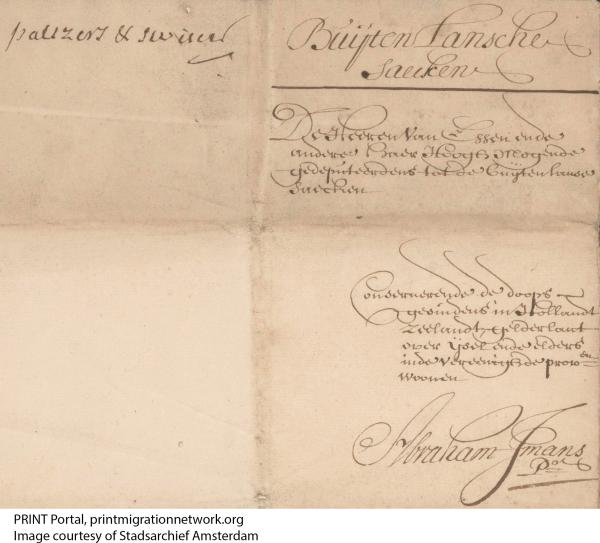 paltzers & switsers
Buijten Lansche
Saecken
De Heeren Van Essen ende
andere haer Hoogh Mogende
gedeputeerdens tot de buijtenlanse
Saecken
Concernerende de doops
gesindens in Hollandt
Zeelandt, Gelderlant
over ijsel ende elders
inde vereenighde prowen
woonen
Abraham Jmans
Por
PRINT Portal, printmigrationnetwork.org
Image courtesy of Stadsarchief Amsterdam